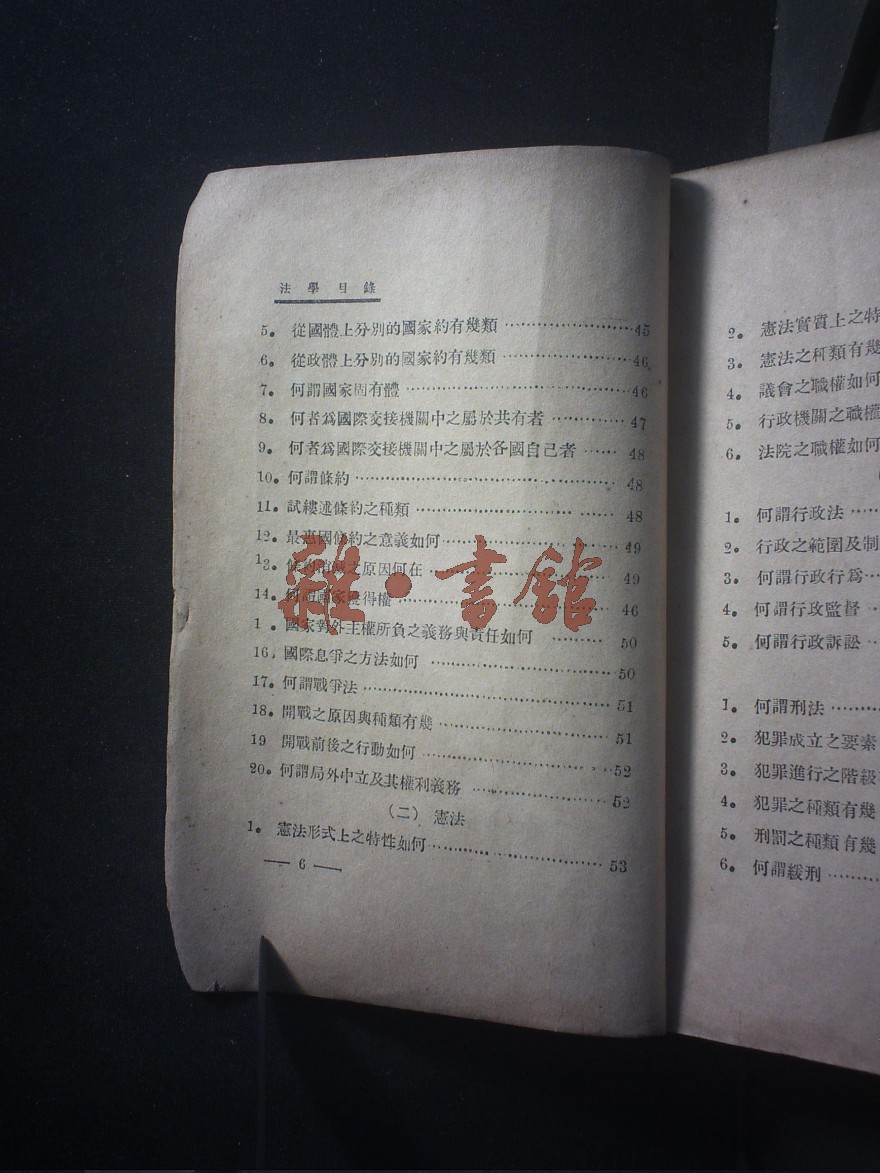 法學目錄
5. 從國體上分別的國家約有幾類……………45
6. 從政體上分別的國家約有幾類……………46
7. 何謂國家固有體……………46
8. 何者爲國際交接機關中之屬於共有者……………47
9. 何者爲國際交接機關中之屬於各國自己者……48
10. 何謂條約……………48
11. 試縷述條約之種類……………48
12. 最惠國條約之意義如何……………49
13. 之原因何在……………49
14. 得權……………46
1 . 國家對外主權所負之義務與責任如何………50
16. 國際息爭之方法如何……………50
17. 何謂戰爭法……………51
18. 開戰之原因與種類有幾……………51
19 開戰前後之行動如何……………52
20. 何謂局外中立及其權利義務……………52
(二) 憲法
1. 憲法形式上之特性如何……………53
— 6 —
雜·書館
2. 憲法實質上之特
3. 憲法之種類有幾
4. 議會之職權如何
5. 行政機關之職權
6. 法院之職權如何
1. 何謂行政法……
2. 行政之範圍及制
3. 何謂行政行爲……
4. 何謂行政監督……
5. 何謂行政訴訟……
1. 何謂刑法……
2. 犯罪成立之要素
3. 犯罪進行之階級
4. 犯罪之種類有幾
5. 刑罰之種類有幾
6. 何謂緩刑……